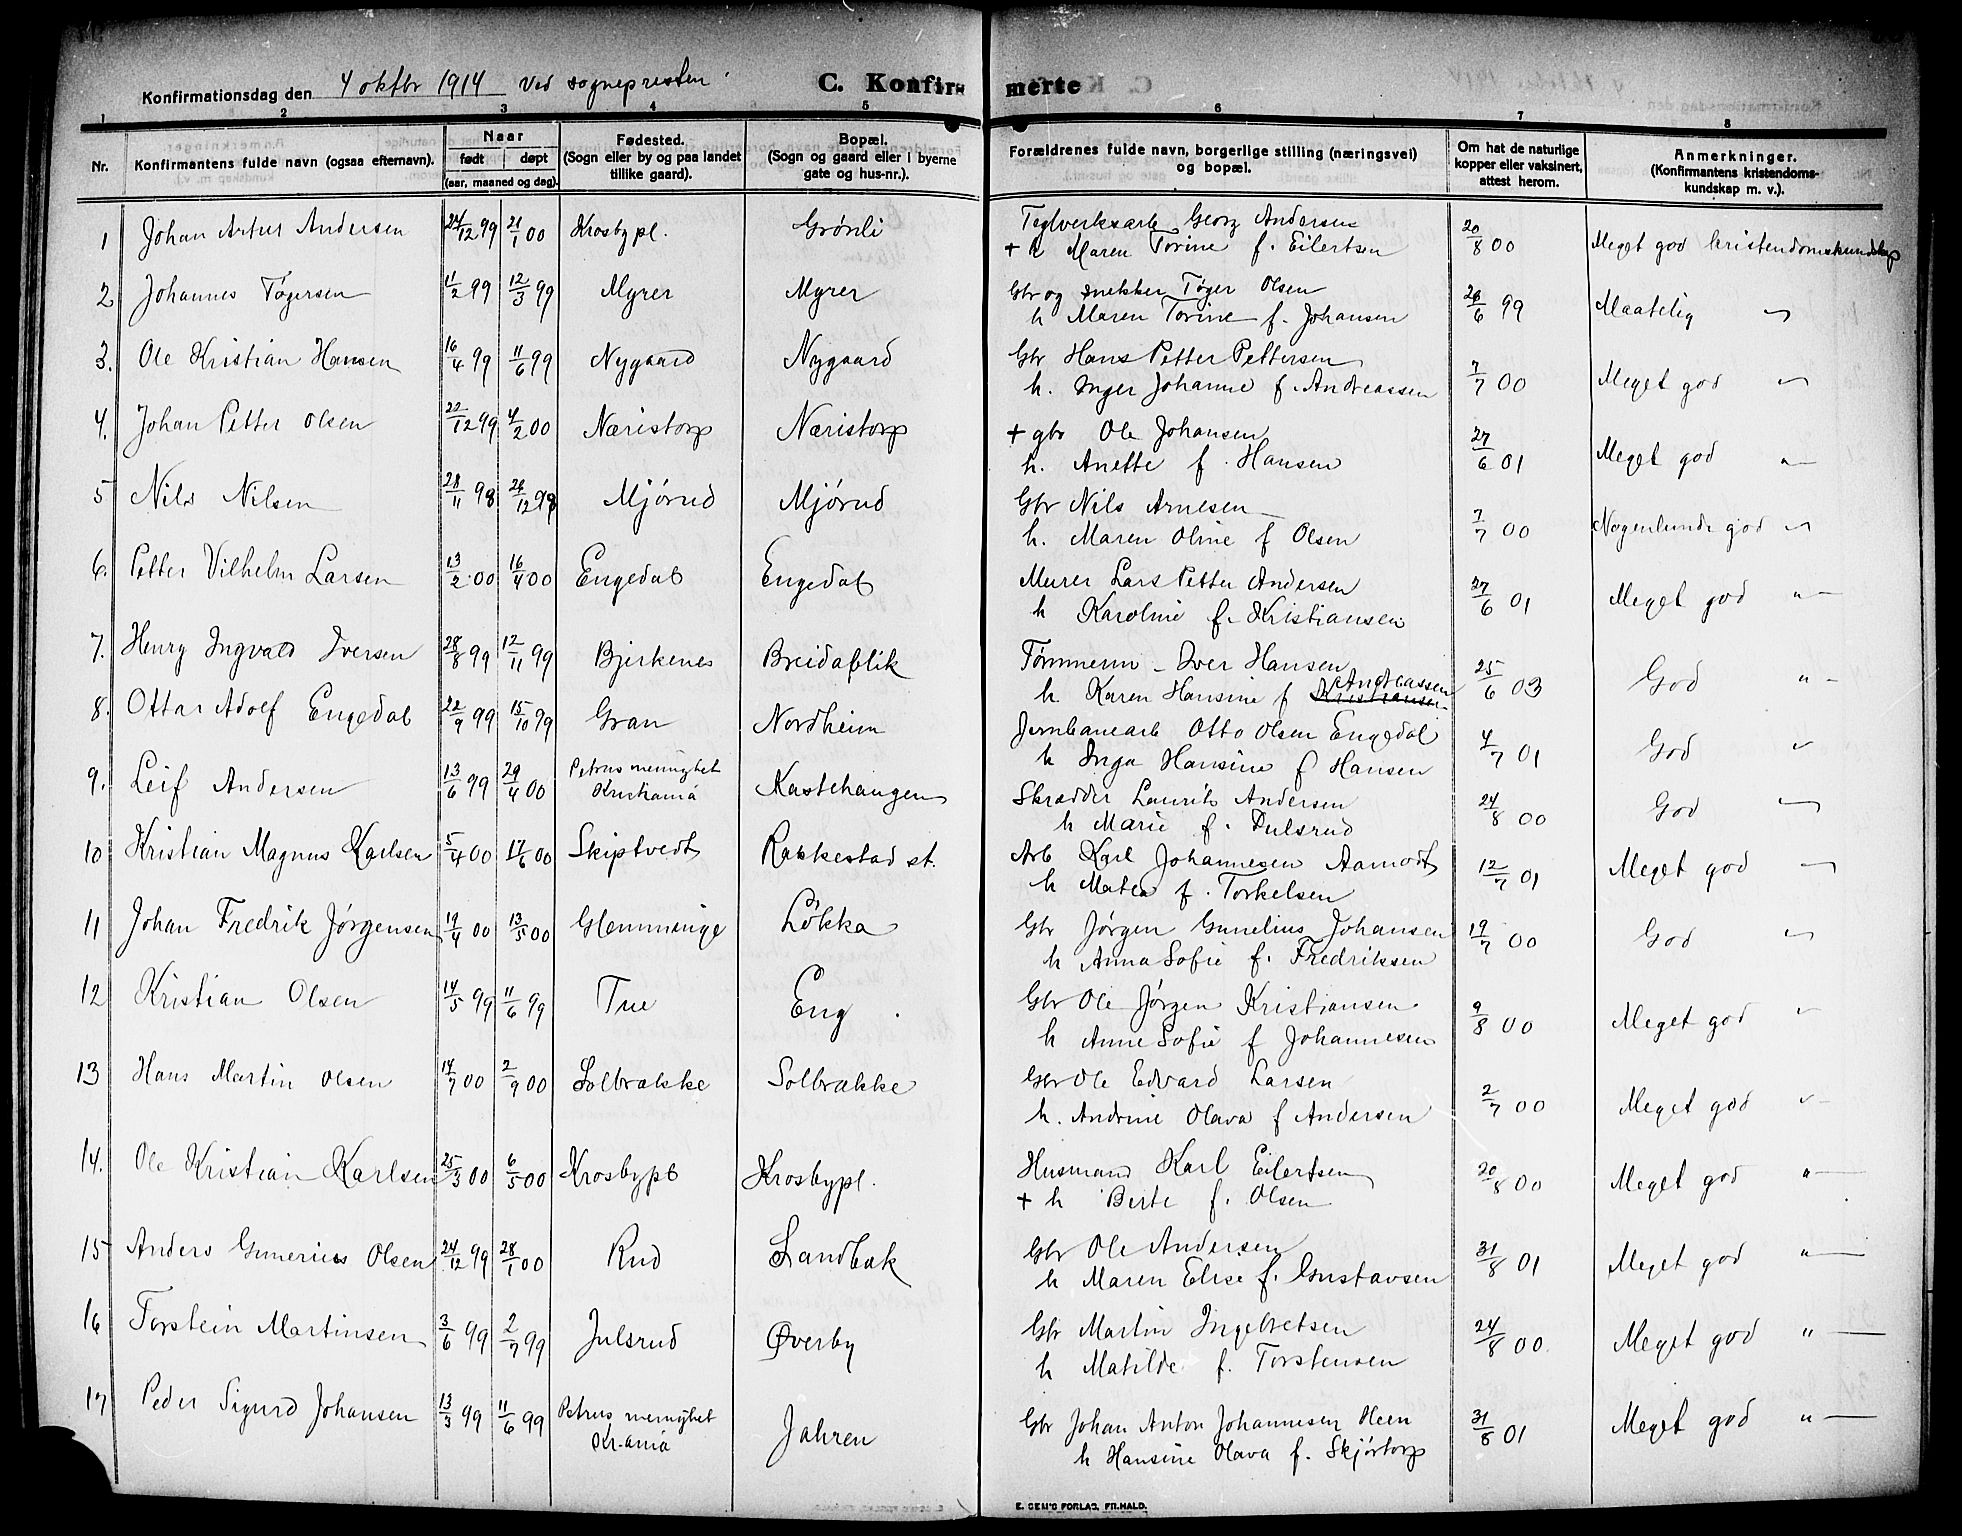 Konfirmationsdag den 4 oktbr 1914 ved sognepresten.
C. Konfirmerte
1 2 3 4 5 6 7 8
Nr. Konfirmantens fulde navn (ogsaa efternavn). Naar født døpt (aar, maaned og dag). Fødested. (Sogn eller by og paa landet tillike gaard). Bopæl. (Sogn og gaard eller i byerne gate og hus-nr.). Forældrenes fulde navn, borgerlige stilling (næringsvei) og bopæl. Om hat de naturlige kopper eller vaksinert, attest herom. Anmerkninger. (Konfirmantens kristendomskundskap m. v.).
1 Johan Artur Andersen 24/12 99 21/1 00 Krosbypl. Grønli Teglverksarb. Georg Andersen
+ h Maren Torine f. Eilertsen 20/8 00 Meget god kristendomskundskap
2 Johannes Tøgersen 11/2 99 12/3 99 Myrer Myrer Gbr og snekker Tøger Olsen
h Maren Torine f. Johansen 26/6 99 Maatelig "
3. Ole Kristian Hansen 16/4 99 11/6 99 Nygaard Nygaard Gbr Hans Petter Pettersen
h. Inger Johanne f. Andreassen 7/7 00 Meget god "
4. Johan Petter Olsen 22/12 99 4/2 00 Næristorp Næristorp + gbr Ole Johansen
h. Anette f. Hansen 27/6 01 Meget god "
5 Nils Nilsen 28/11 98 26/12 98 Mjørud Mjørud Gbr Nils Arnesen
h. Maren Oline f Olsen 7/7 00 Nogenlunde god "
6. Petter Vilhelm Larsen 13/2 00 16/4 00 Engedal Engedal Murer Lars Petter Andersen
h Karoline f. Kristiansen 27/6 01 Meget god "
7. Henry Ingvald Iversen 28/8 99 12/11 99 Bjerkenes Breidablik Tømmerm - Iver Hansen
h Karen Hansine f Kristiansen Andreassen 25/6 03 God "
8. Ottar Adolf Engedal 22/9 99 15/10 99 Gran Nordheim Jernbanearb Otto Olsen Engedal
h Inga Hansine f Hansen 4/7 01 God "
9. Leif Andersen 13/6 99 29/4 00 Petrus menighet Kristiania Kastehaugen Skrædder Laurits Andersen
h Marie f. Dulsrud 24/8 00 God "
10 Kristian Magnus Karlsen 5/4 00 17/6 00 Skiptvedt Rakkestad st. Arb Karl Johannesen Aamodt
h Matea f. Torkelsen 12/7 01 Meget god "
11 Johan Fredrik Jørgensen 19/4 00 13/5 00 Glemminge Løkka Gbr Jørgen Gunelius Johansen
h Anna Sofie f. Fredriksen 19/7 00 God "
12 Kristian Olsen 14/5 99 11/6 99 Tue Eng Gbr Ole Jørgen Kristiansen
h Anne Sofie f Johannesen 9/8 00 Meget god "
13 Hans Martin Olsen 14/7 00 2/9 00 Solbrække Solbrække Gbr Ole Edvard Larsen
h. Andrine Olava f Andersen 2/7 00 Meget god "
14. Ole Kristian Karlsen 25/3 00 6/5 00 Krosbypl Krosbypl. Husmand Karl Eilertsen
+ h Berte f. Olsen 20/8 00 Meget god "
15 Anders Gunerius Olsen 24/12 99 28/1 00 Rud Sandbæk Gbr Ole Andersen
h Maren Elise f. Gustavsen 31/8 01 Meget god "
16 Torstein Martinsen 3/6 99 2/7 99 Julsrud Øverby Gbr Martin Ingebretsen
h Matilde f. Torstensen 24/8 00 Meget god "
17 Peder Sigurd Johansen 13/3 99 11/6 99 Petrus menighet Kr.ania Jahren Gbr Johan Anton Johannesen Heen
h Hansine Olava f. Skjørtorp 31/8 01 Meget god "
E. SEM'S FORLAG, FR.HALD.